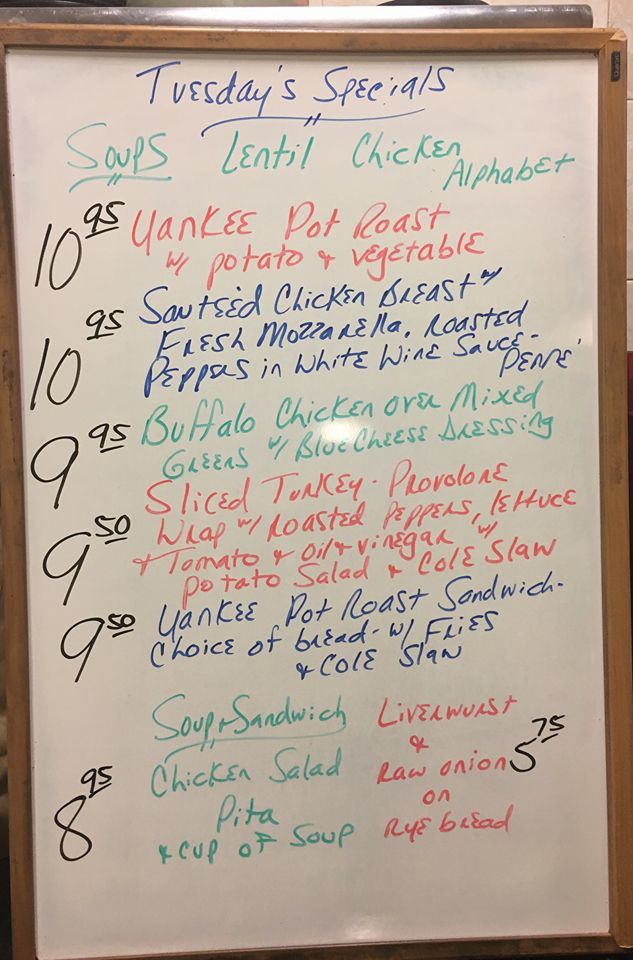 Tuesday's Specials
Soups Lentil Chicken Alphabet
10 95 Yankee Pot Roast
w/ potato & vegetable
10 95 Sauteéd Chicken Breast w/
Fresh Mozzarella, Roasted
Peppers in White Wine Sauce - Penne
9 95 Buffalo Chicken over Mixed
Greens w/ Blue Cheese Dressing
9 50 Sliced Turkey - Provolone
Wrap w/ Roasted Peppers, lettuce
& Tomato & Oil & vinegar w/
Potato Salad & Cole Slaw
9 50 Yankee Pot Roast Sandwich -
Choice of bread - w/ Fries
& Cole Slaw
Soup & Sandwich
8 95 Chicken Salad
Pita
& cup of Soup
Liverwurst
&
Raw onion 5 75
on
Rye bread